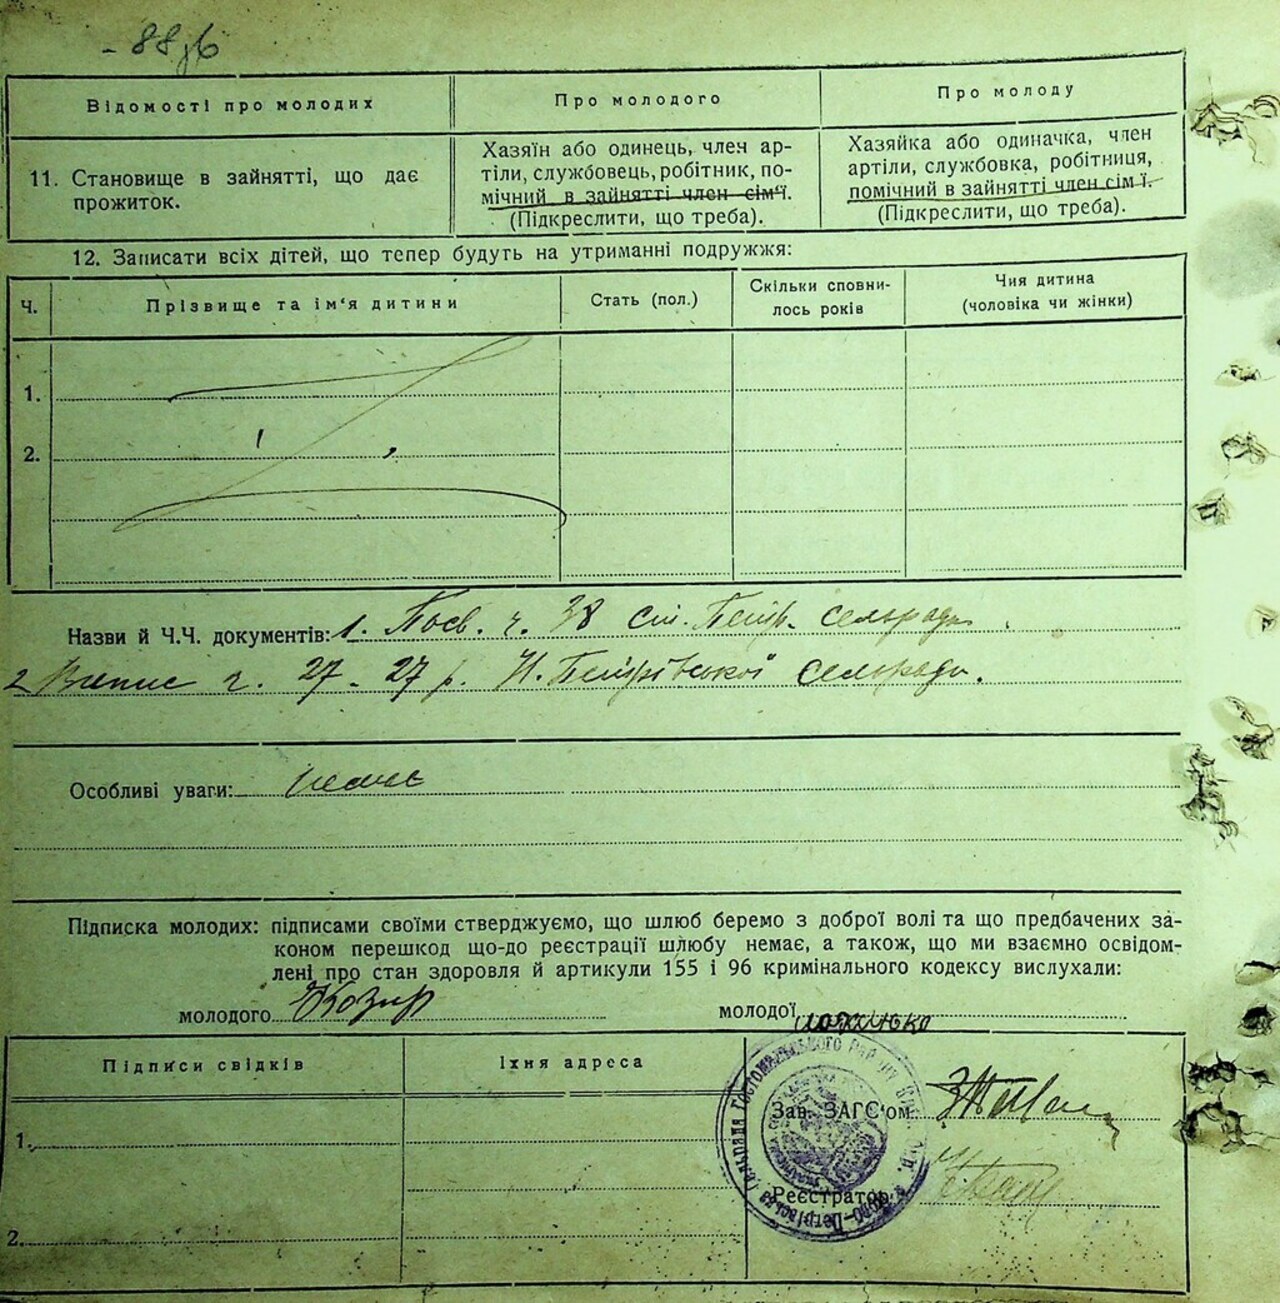 - 88 зв
Відомості про молодих
Про молодого
Про молоду
11. Становище в зайнятті, що дає
прожиток.
Хазяїн або одинець, член ар-
тіли, службовець, робітник, по-
мічний в зайнятті член сім'ї.
(Підкреслити, що треба).
Хазяйка або одиначка, член
артіли, службовка, робітниця,
помічний в зайнятті член сім ї.
(Підкреслити, що треба).
12. Записати всіх дітей, що тепер будуть на утриманні подружжя:
Ч.
Прізвище та ім'я дитини
Стать (пол.)
Скільки сповни-
лось років
Чия дитина
(чоловіка чи жінки)
1.
2.
Назви й Ч.Ч. документів: 1. Посв. ч. 38 ст. Петр. сельради
2 Випис ч. 27 - 27 р. Н. Петрівської сельради.
Особливі уваги: немає
Підписка молодих: підписами своїми стверджуємо, що шлюб беремо з доброї волі та що предбачених за-
коном перешкод що-до реєстрації шлюбу немає, а також, що ми взаємно освідом-
лені про стан здоровля й артикули 155 і 96 кримінального кодексу вислухали:
молодого Козир
молодої
Підписи свідків
Їхня адреса
1.
2.
Зав. ЗАГС'ом
Реєстратор